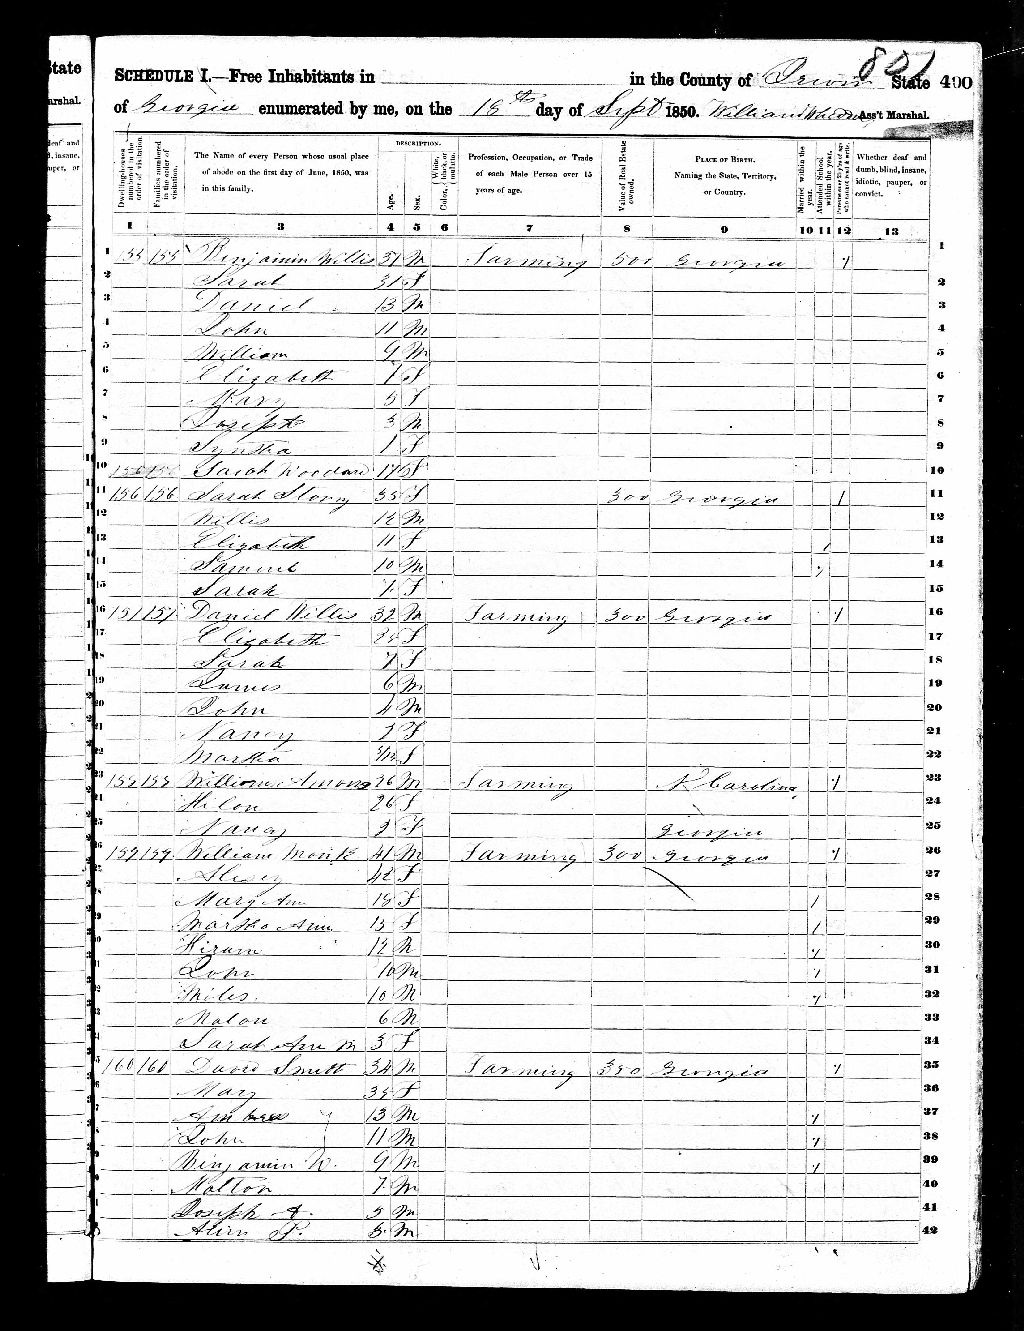 State
arshal.
801
SCHEDULE I.—Free Inhabitants in in the County of Irwin State 400
of Georgia enumerated by me, on the 18th day of Sept 1850. William Ass't Marshal.
Dwelling-houses numbered in the order of visitation.
Families numbered in the order of visitation.
The Name of every Person whose usual place of abode on the first day of June, 1850, was in this family.
DESCRIPTION.
Age.
Sex.
Color, White, black, or mulatto.
Profession, Occupation, or Trade of each Male Person over 15 years of age.
Value of Real Estate owned.
PLACE OF BIRTH. Naming the State, Territory, or Country.
Married within the year.
Attended School within the year.
Persons over 20 y'rs of age who cannot read & write.
Whether deaf and dumb, blind, insane, idiotic, pauper, or convict.
1 2 3 4 5 6 7 8 9 10 11 12 13
1 155 155 Benjamin Willis 37 M Farming 500 Georgia / 1
2 Sarah 31 F 2
3 Daniel 13 M 3
4 John 11 M 4
5 William 9 M 5
6 Elizabeth 7 F 6
7 Mary 5 F 7
8 Joseph 3 M 8
9 Syntha 1 F 9
10 Sarah Woodard 17 F 10
11 156 156 Sarah Story 35 F 300 Georgia / 11
12 Willis 12 M 12
13 Elizabeth 11 F / 13
14 Samuel 10 M / 14
15 Sarah 7 F 15
16 157 157 Daniel Willis 32 M Farming 300 Georgia / 16
17 Elizabeth 25 F 17
18 Sarah 7 F 18
19 James 6 M 19
20 John 4 M 20
21 Nancy 2 F 21
22 Martha /12 F 22
23 158 158 William 36 M Farming N Carolina / 23
24 26 F 24
25 Nancy 2 F Georgia 25
26 159 159 William Monk 41 M Farming 300 Georgia / 26
27 Alsey 42 F 27
28 Mary Ann 18 F / 28
29 Martha Ann 15 F / 29
30 Hiram 12 M / 30
31 John 10 M / 31
32 Miles 10 M / 32
33 6 M 33
34 Sarah Ann M 3 F 34
35 160 160 David Smith 34 M Farming 350 Georgia / 35
36 Mary 35 F 36
37 13 M / 37
38 John 11 M / 38
39 Benjamin W. 9 M / 39
40 Molton 7 M 40
41 Joseph A. 5 M 41
42 P. 3 M 42